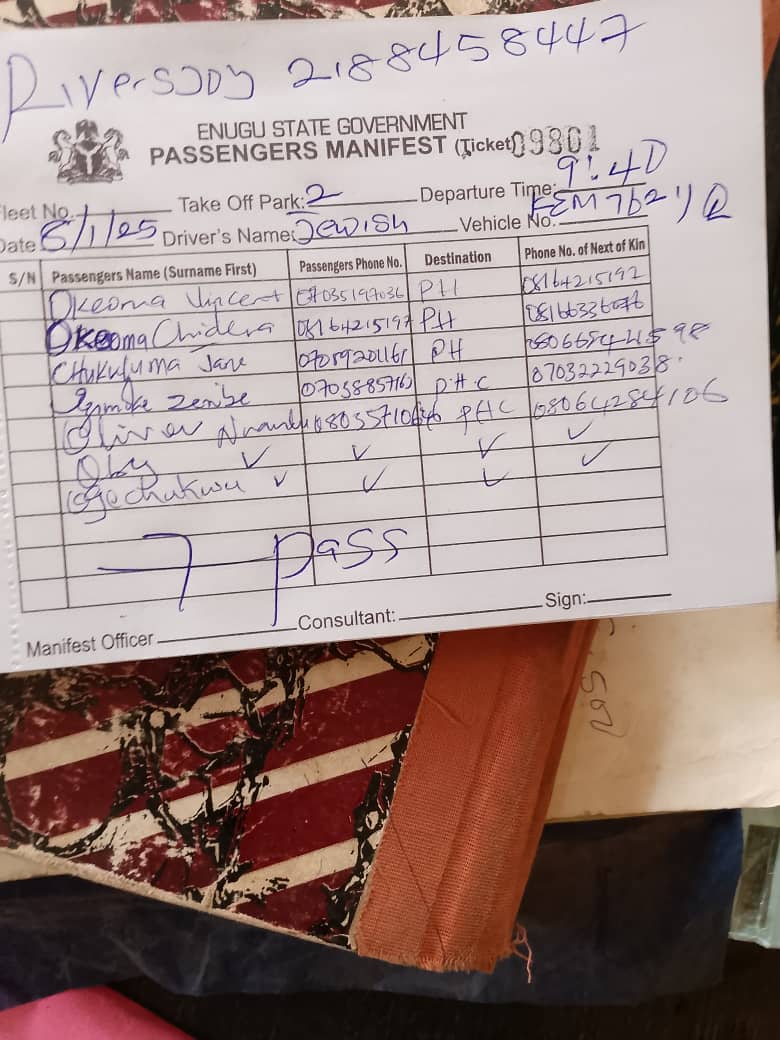 RiversJoy 2188458447
ENUGU STATE GOVERNMENT
PASSENGERS MANIFEST (Ticket) 09801
Fleet No. 1 Take Off Park: 2 Departure Time: 9:40
Date 8/1/25 Driver's Name: Jewish Vehicle No. KEM 762
S/N Passengers Name (Surname First) Passengers Phone No. Destination Phone No. of Next of Kin
Okeoma Vincent 07035197036 PH 08164215192
Okeoma Chidera 08164215197 PH
Chukwuma Jane PH
PHC 07032229038
Oliver PHC 08064284106
Oby ✓ ✓ ✓ ✓
Ogechukwu ✓ ✓ ✓ ✓
7 pass
Manifest Officer Consultant: Sign: